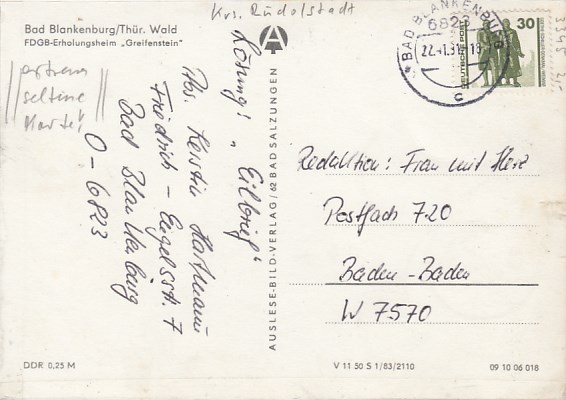 Krs. Rudolstadt
Bad Blankenburg/Thür. Wald
FDGB-Erholungsheim „Greifenstein"
extrem
seltene
Karte!
Lösung: „Eilbrief"
Abs. Kerstin Hofmann
Friedrich-Engelsstr. 7
Bad Blankenburg
O-6823
AUSLESE-BILD-VERLAG/62 BAD SALZUNGEN
BAD BLANKENBURG
6823
22.-1.91-18
c
DEUTSCHE POST
30
Redaktion: Frau mit Herz
Postfach 720
Baden-Baden
W 7570
DDR 0,25 M
V 11 50 S 1/83/2110
09 10 06 018